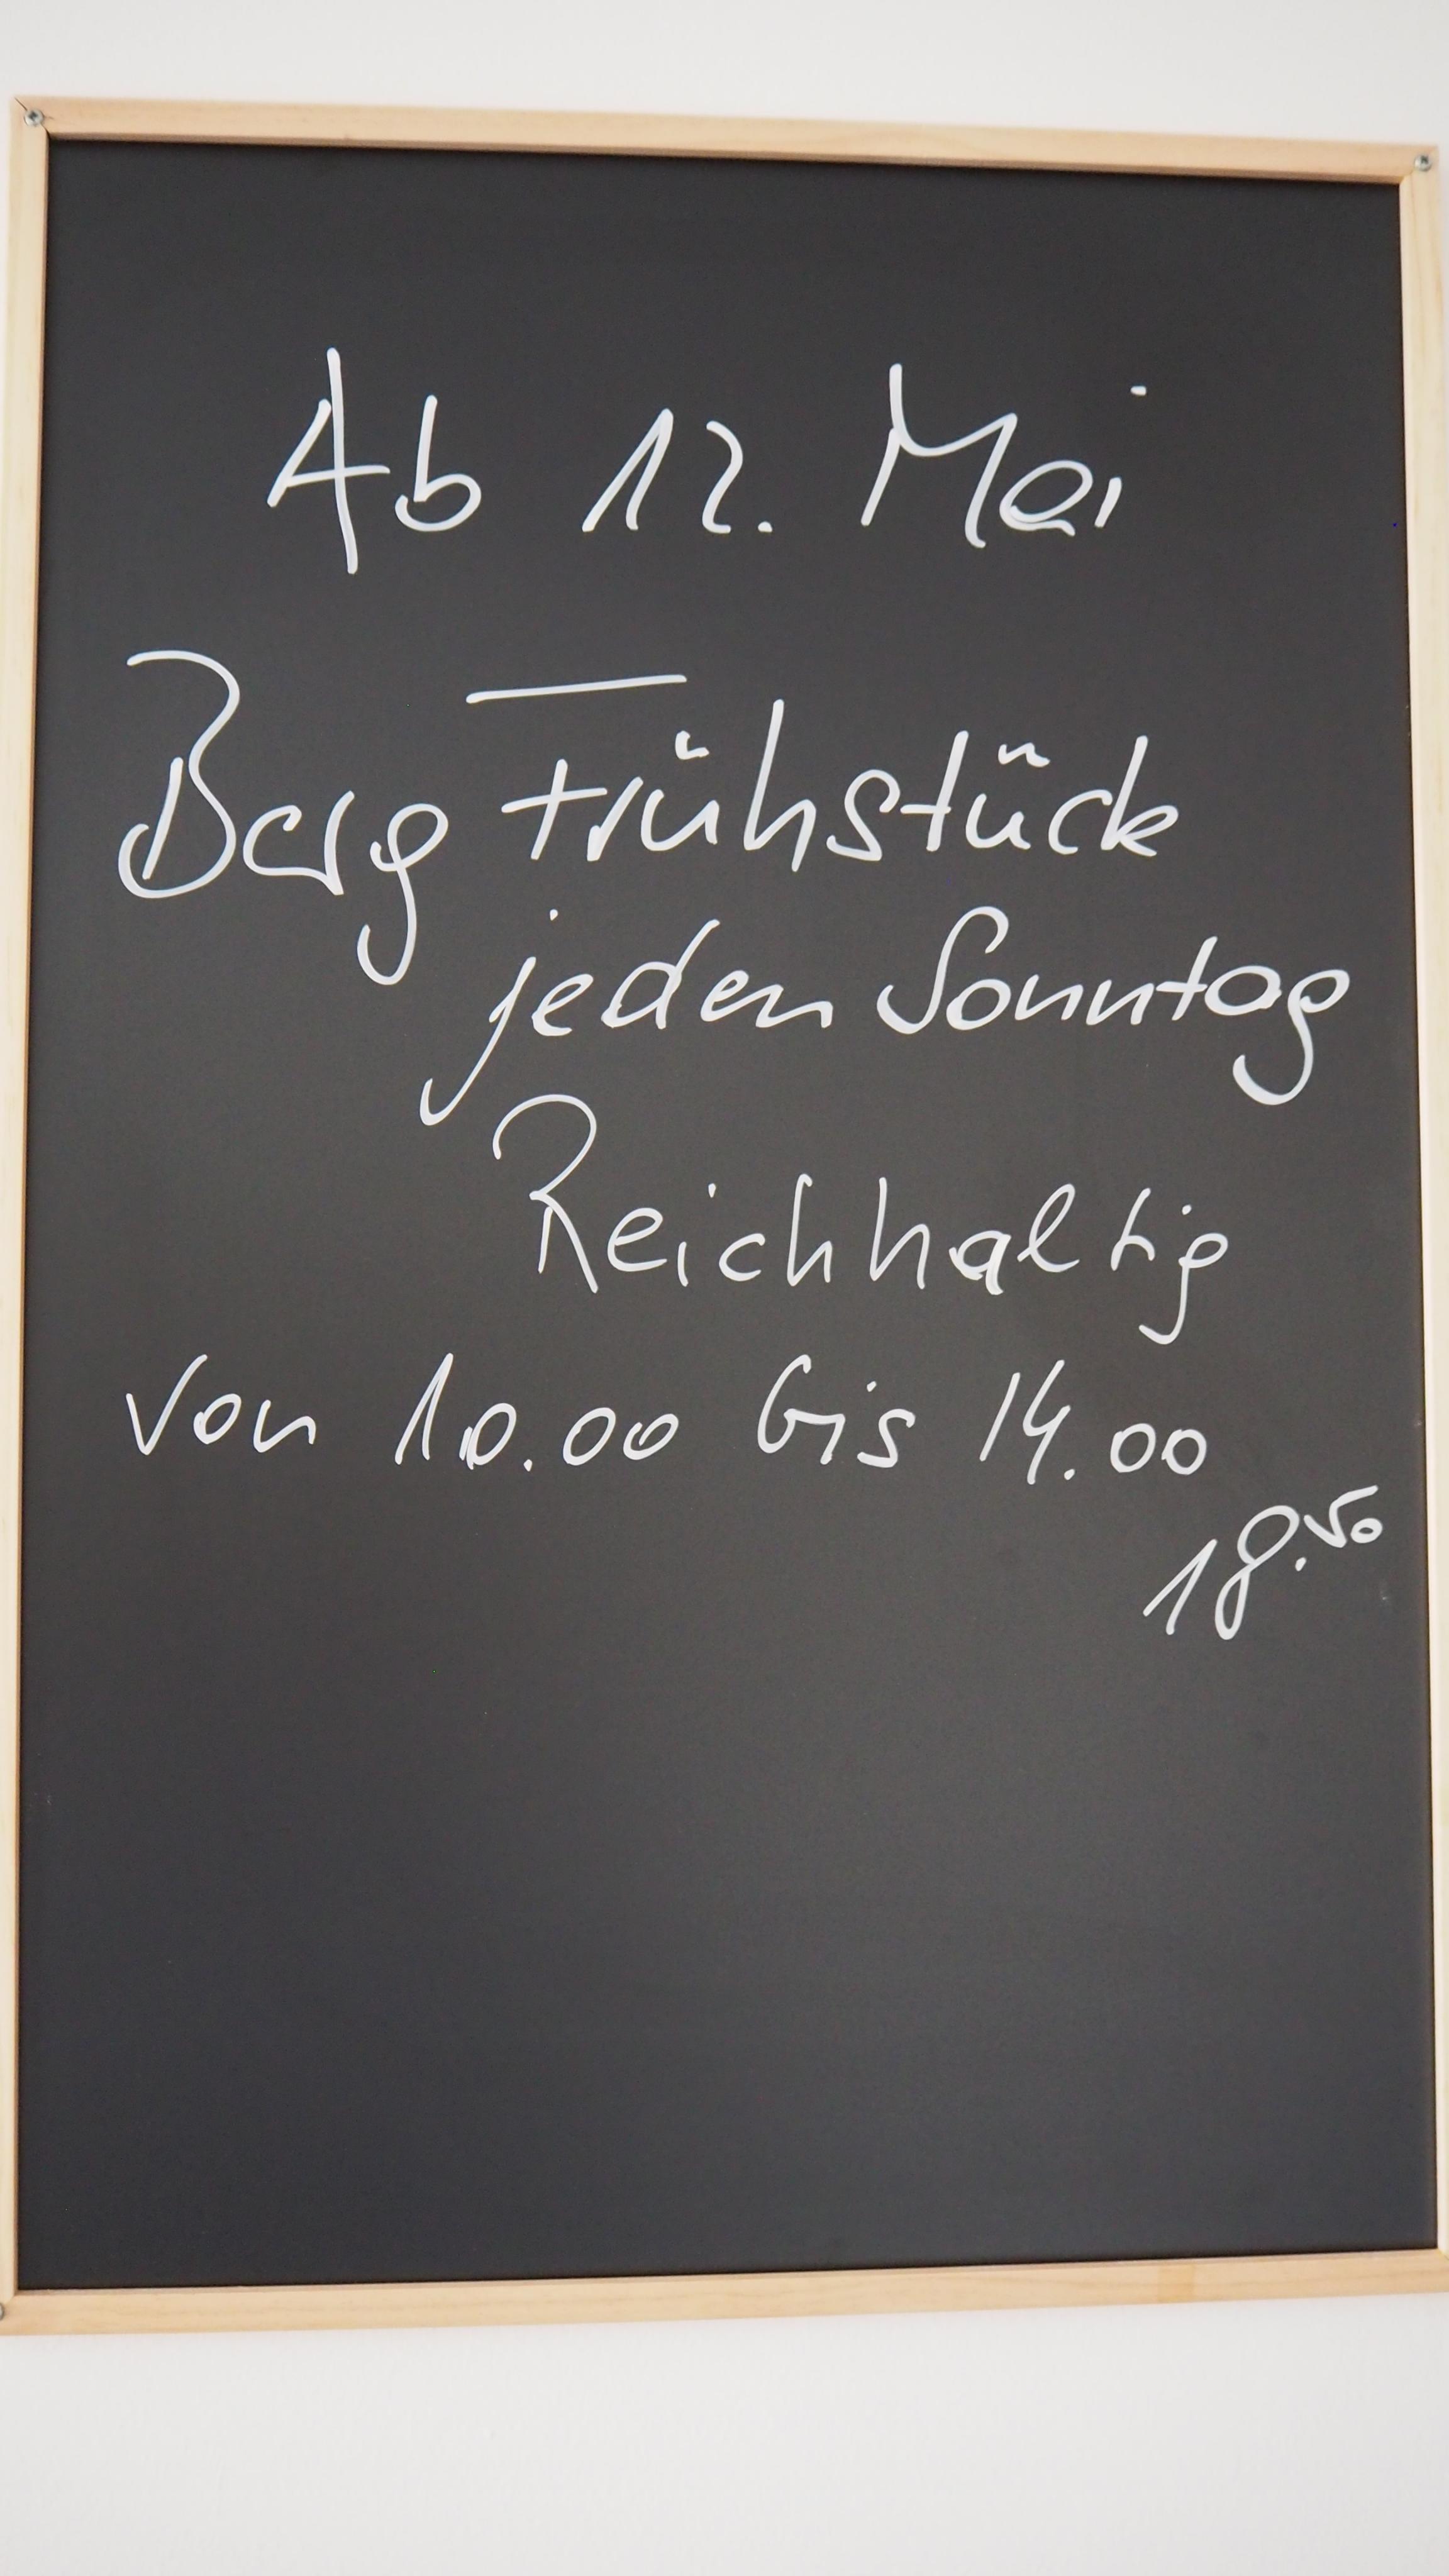 Ab 12. Mai
Berg Frühstück
jeden Sonntag
Reichhaltig
von 10.00 bis 14.00
18.50